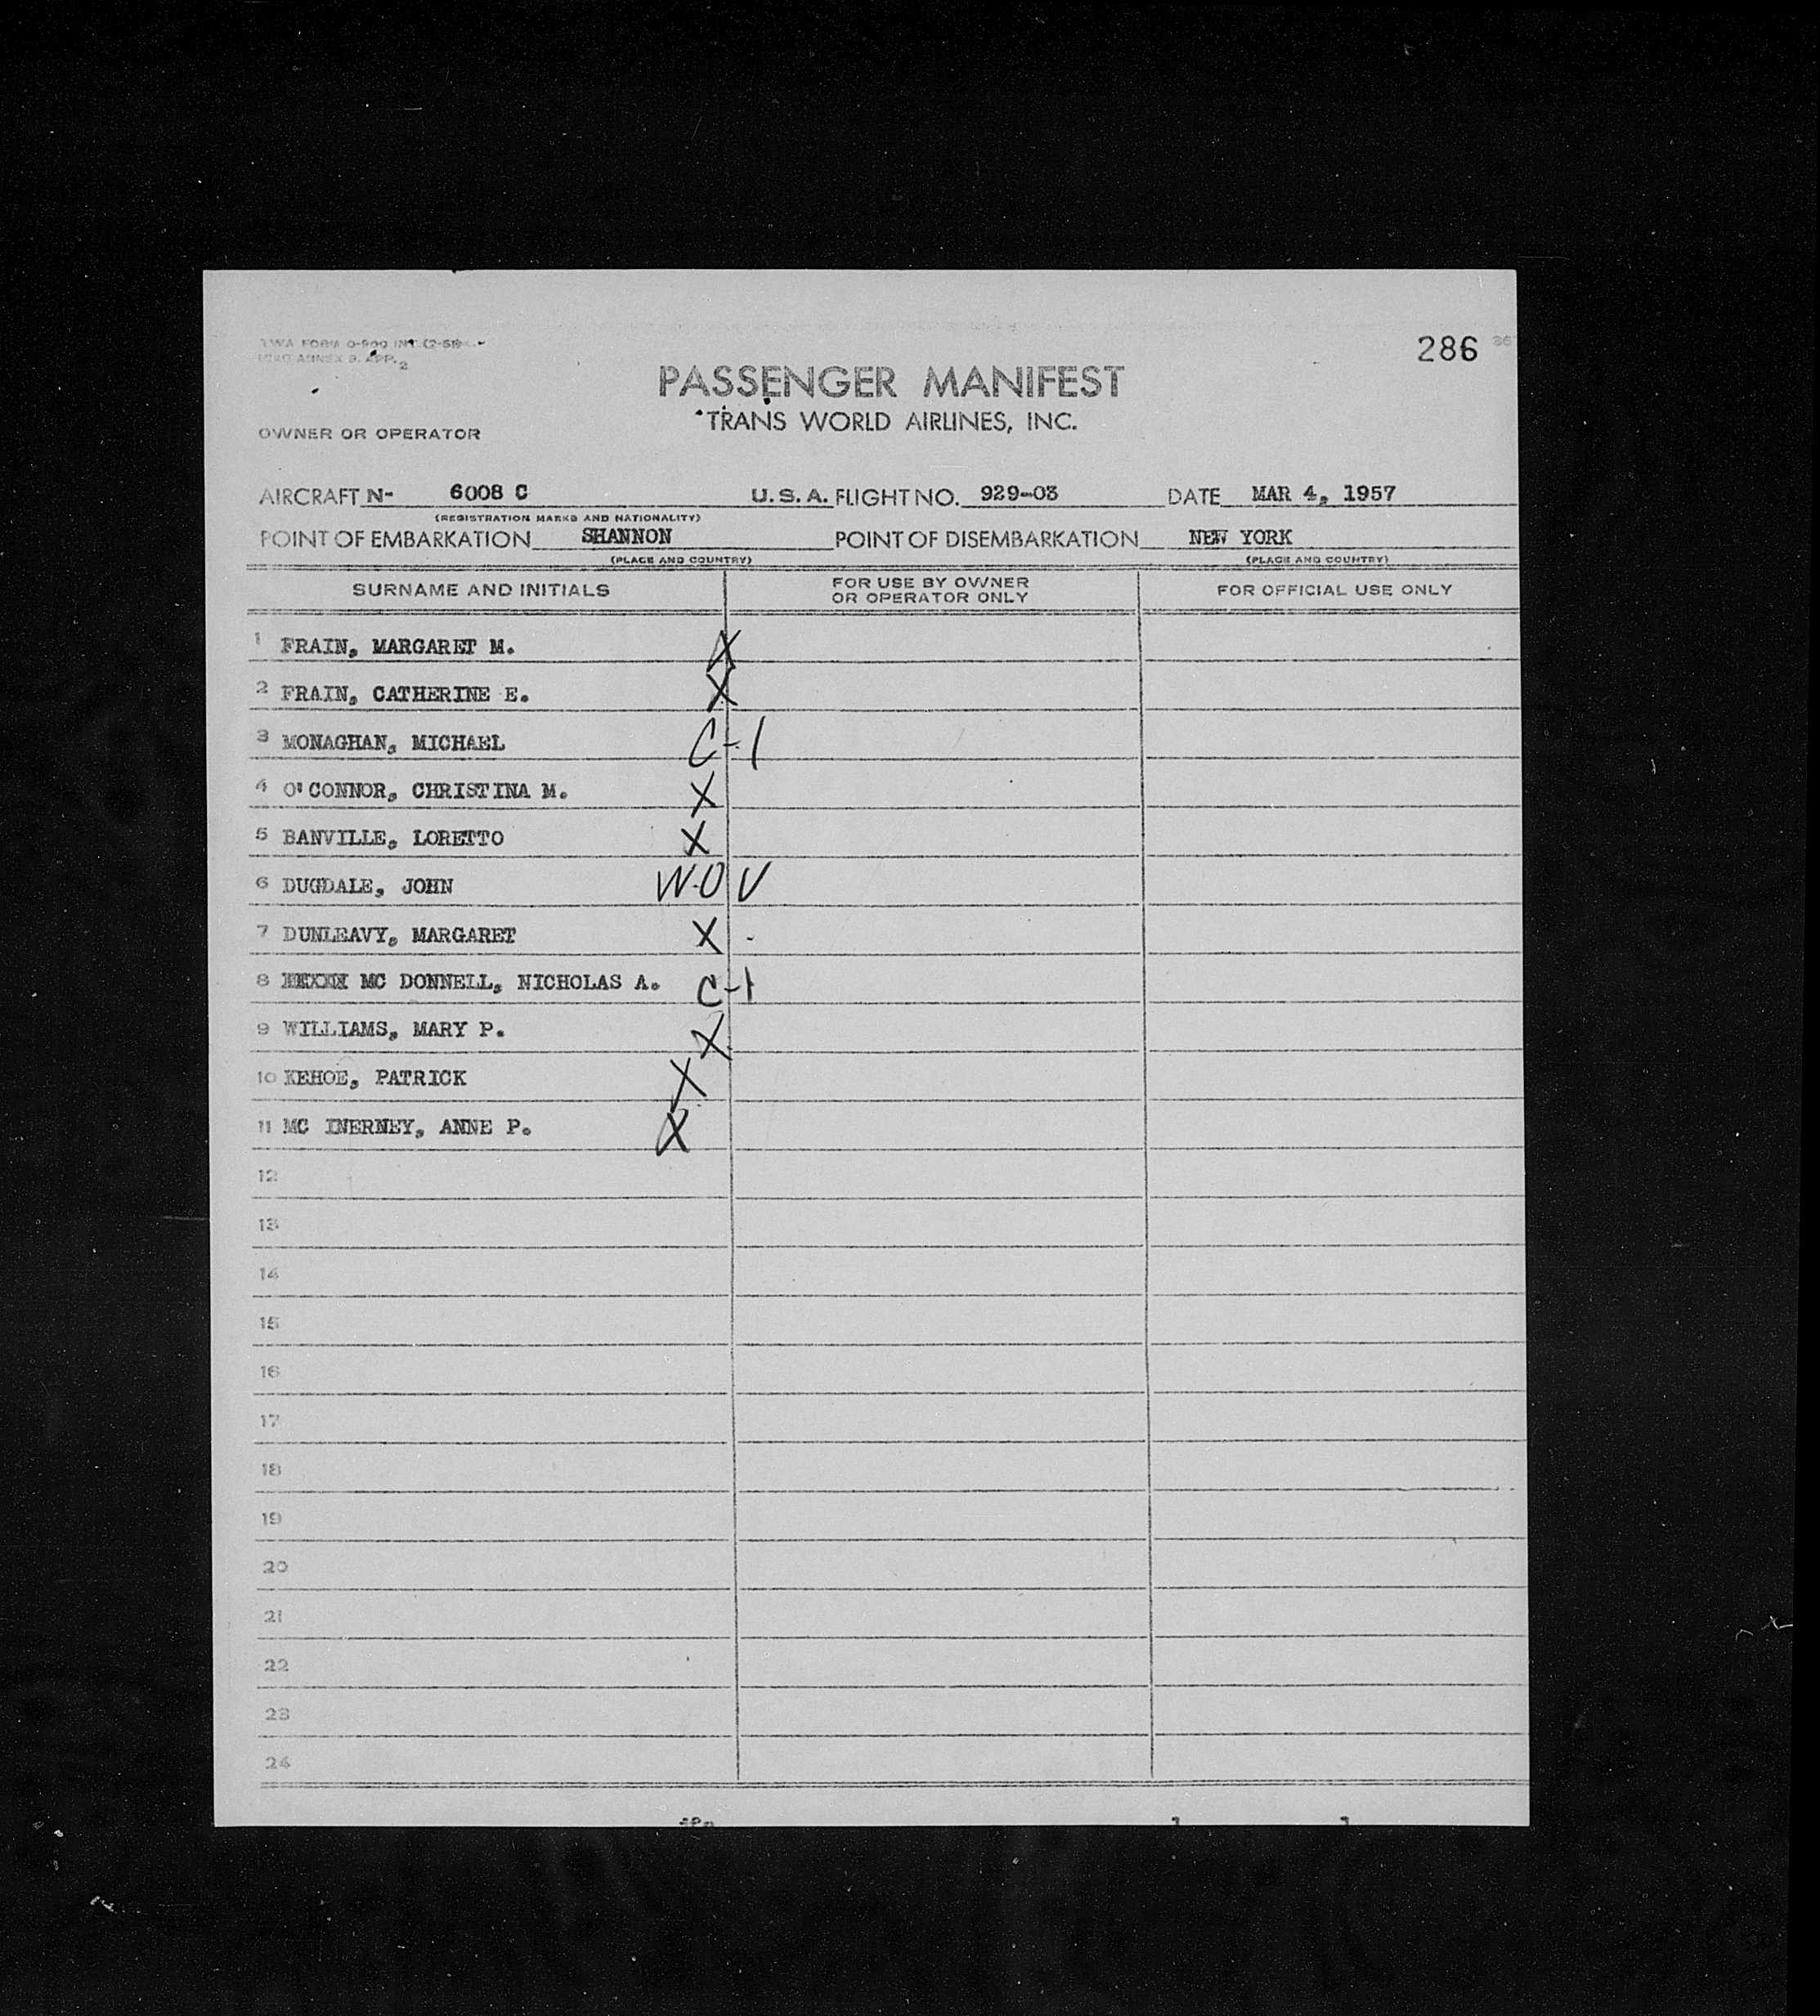 TWA FORM O-900 INT. (2-51)
ICAO ANNEX 9. APP. 2
286
PASSENGER MANIFEST
TRANS WORLD AIRLINES, INC.
OWNER OR OPERATOR
AIRCRAFT N- 6008 C U.S.A. FLIGHT NO. 929-03 DATE MAR 4, 1957
(REGISTRATION MARKS AND NATIONALITY)
POINT OF EMBARKATION SHANNON POINT OF DISEMBARKATION NEW YORK
(PLACE AND COUNTRY) (PLACE AND COUNTRY)
SURNAME AND INITIALS FOR USE BY OWNER OR OPERATOR ONLY FOR OFFICIAL USE ONLY
1 FRAIN, MARGARET M. X
2 FRAIN, CATHERINE E. X
3 MONAGHAN, MICHAEL C-1
4 O'CONNOR, CHRISTINA M. X
5 BANVILLE, LORETTO X
6 DUGDALE, JOHN W.O V
7 DUNLEAVY, MARGARET X
8 MC DONNELL, NICHOLAS A. C-1
9 WILLIAMS, MARY P. X
10 KEHOE, PATRICK X
11 MC INERNEY, ANNE P. X
12
13
14
15
16
17
18
19
20
21
22
23
24